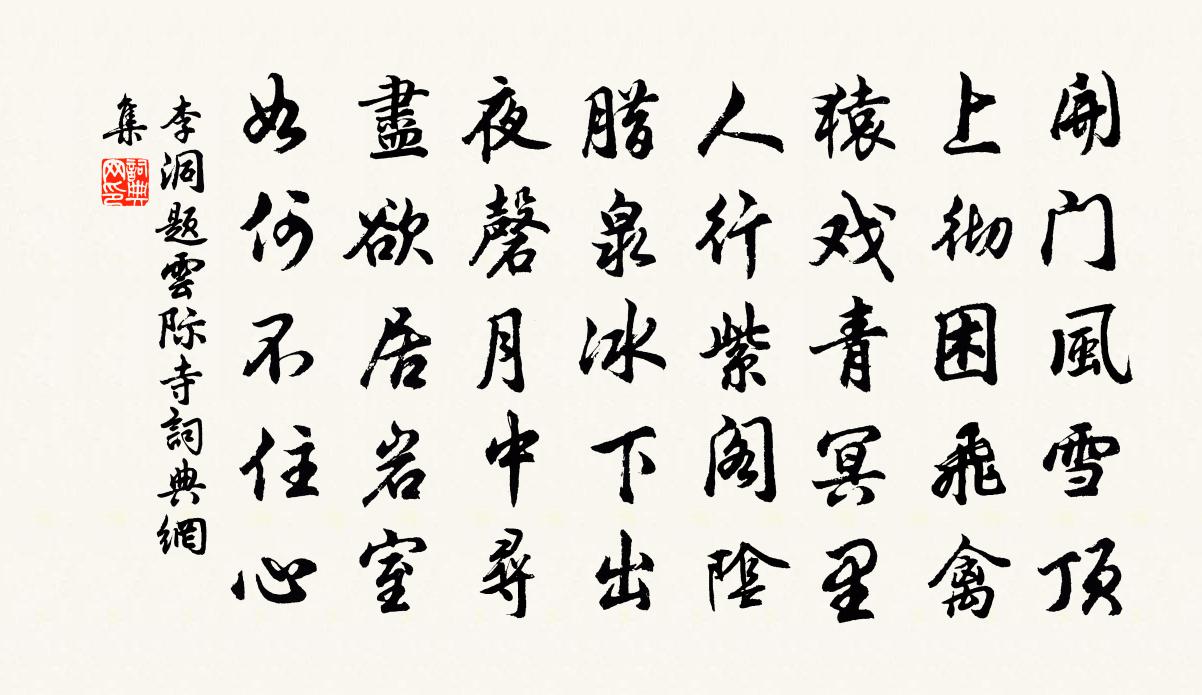 開门風雪顶
上彻困飛禽
猿戏青冥里
人行紫阁陰
腊泉冰下出
夜磬月中尋
盡欲居岩室
如何不住心
李洞题雲际寺詞典網
集
詞典
网印